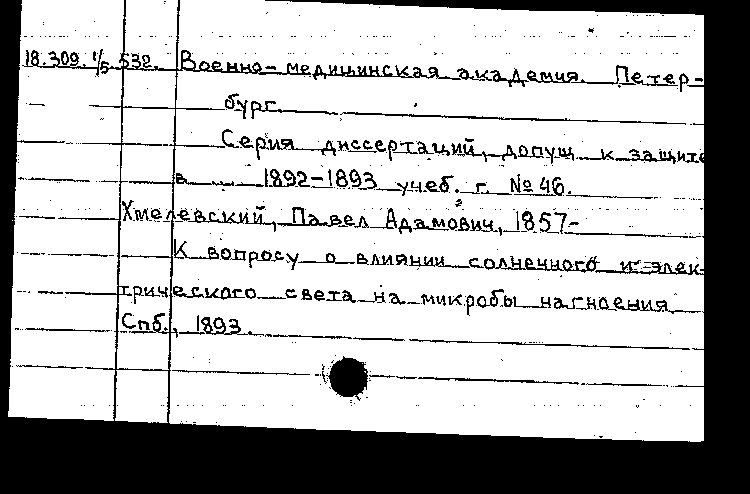 18.309. 1/5 532. Военно-медицинская академия. Петер-
бург.
Серия диссертаций, допущ к защите
в ... 1892-1893 учеб. г. № 46.
Хмелевский, Павел Адамович, 1857-
К вопросу о влиянии солнечного и элек-
трического света на микробы нагноения
Спб., 1893.